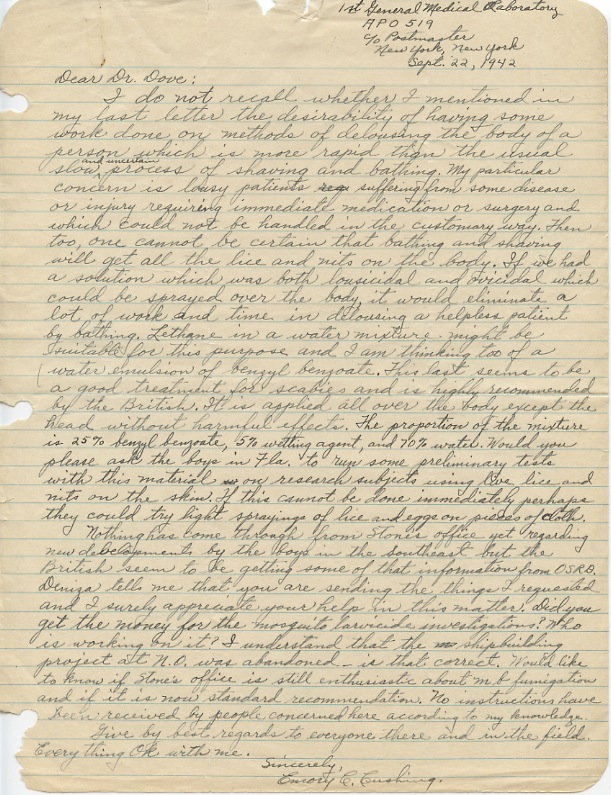 1st General Medical Laboratory
APO 519
c/o Postmaster
New York, New York
Sept. 22, 1942
Dear Dr. Dove:
I do not recall whether I mentioned in
my last letter the desirability of having some
work done on methods of delousing the body of a
person which is more rapid than the usual
slow and uncertain process of shaving and bathing. My particular
concern is lousy patients suffering from some disease
or injury requiring immediate medication or surgery and
which could not be handled in the customary way. Then
too, one cannot be certain that bathing and shaving
will get all the lice and nits on the body. If we had
a solution which was both lousicidal and ovicidal which
could be sprayed over the body it would eliminate a
lot of work and time in delousing a helpless patient
by bathing. Lethane in a water mixture might be
suitable for this purpose and I am thinking too of a
water emulsion of benzyl benzoate. This last seems to be
a good treatment for scabies and is highly recommended
by the British. It is applied all over the body except the
head without harmful effects. The proportion of the mixture
is 25% benyl benzoate, 5% wetting agent, and 70% water. Would you
please ask the boys in Fla. to run some preliminary tests
with this material on research subjects using live lice and
nits on the skin. If this cannot be done immediately perhaps
they could try light sprayings of lice and eggs on pieces of cloth.
Nothing has come through from Stone's office yet regarding
new developments by the boys in the southeast but the
British seem to be getting some of that information from OSRD.
tells me that you are sending the things I requested
and I surely appreciate your help in this matter. Did you
get the money for the mosquito larvicide investigations? Who
is working on it? I understand that the shipbuilding
project at N.O. was abandoned - is that correct. Would like
to know if Stone's office is still enthusiastic about m b fumigation
and if it is now standard recommendation. No instructions have
been received by people concerned here according to my knowledge.
Give by best regards to everyone there and in the field.
Everything OK with me.
Sincerely,
Emory C. Cushing.